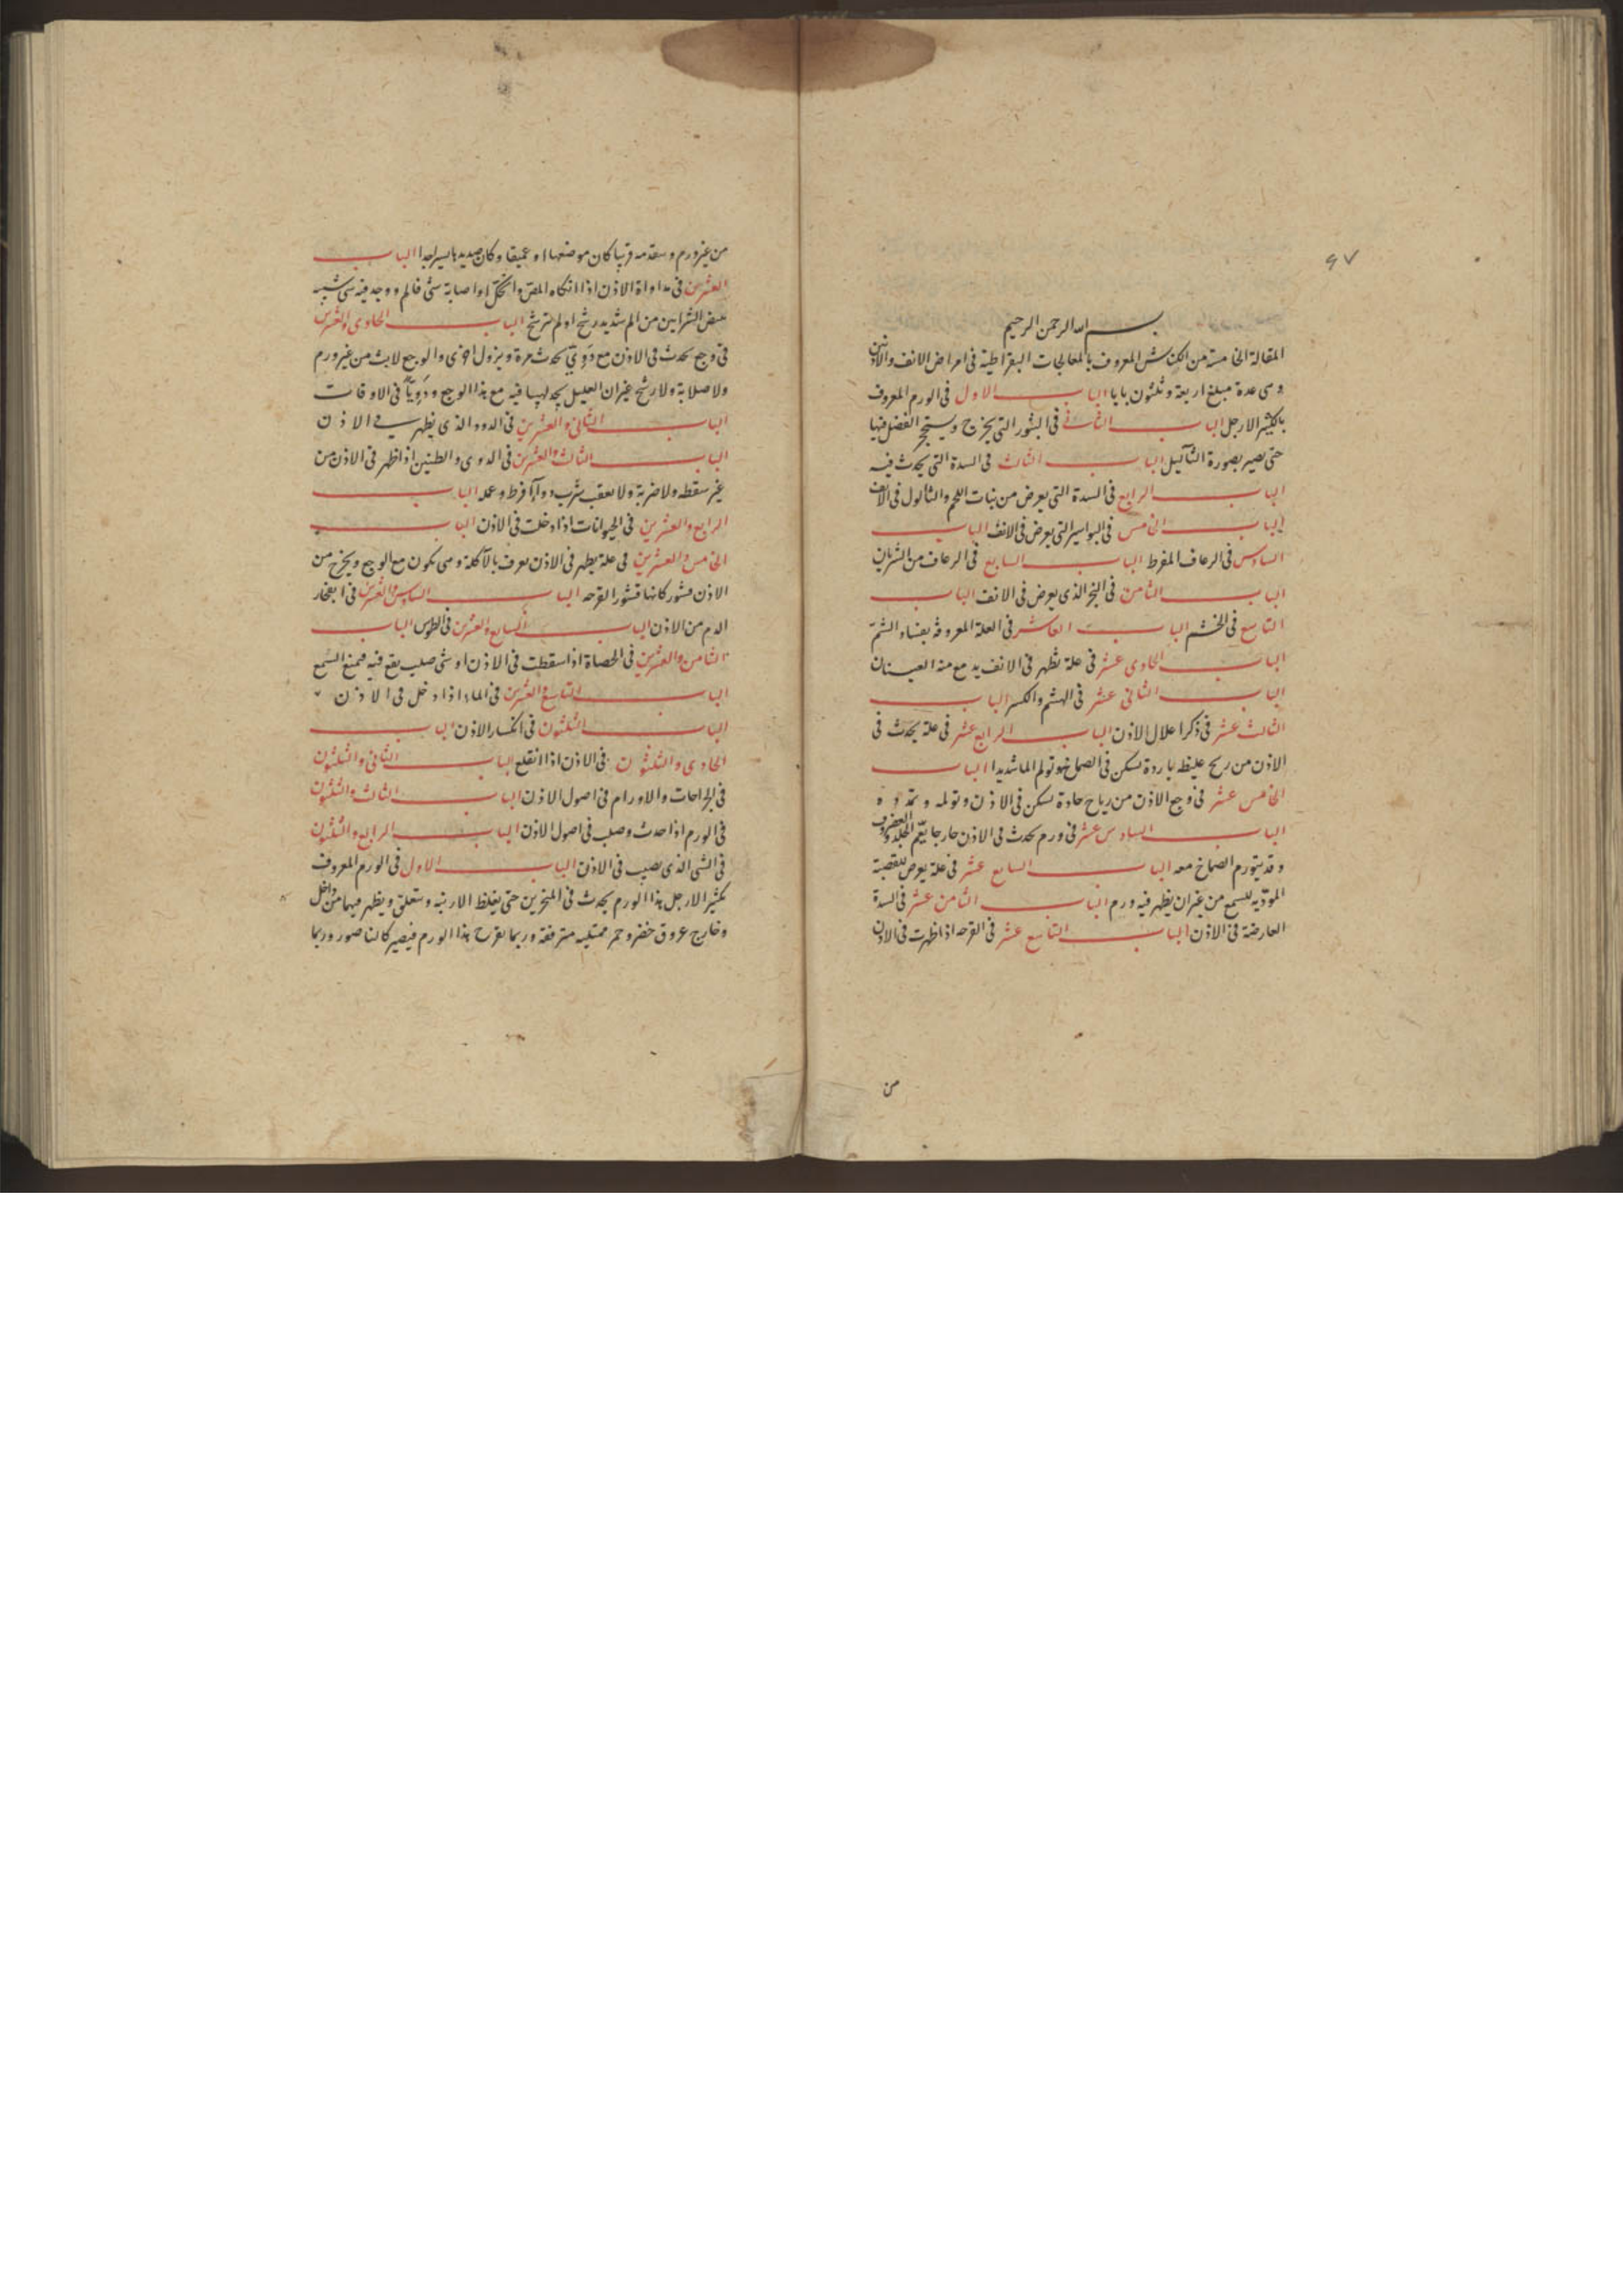 ٩٧
بسم الله الرحمن الرحيم
المقالة الخامسة من الكناش المعروف بالمعالجات البقراطية في امراض الانف والاذنين
وهى عدة مبلغ اربعة وثلثون بابا الباب الاول في الورم المعروف
بالكثير الارجل الباب الثاني في البثور التي يخرج ويستحجر الفضل فيها
حتى يصير بصورة الثآليل الباب الثالث في السدة التي يحدث فيه
الباب الرابع في السدة التي يعرض من نبات اللحم والثالول في الانف
الباب الخامس في البواسير التي يعرض في الانف الباب
السادس في الرعاف المفرط الباب السابع في الرعاف من الشريان
الباب الثامن في البخر الذى يعرض في الانف الباب
التاسع في الخشم الباب العاشر في العلة المعروفة بفساد الشمّ
الباب الحادى عشر في علة تظهر في الانف يدمع منه العينان
الباب الثانى عشر في الهشم والكسر الباب
الثالث عشر في ذكر اعلال الاذن الباب الرابع عشر في علة يحدث في
الاذن من ريح غليظه باردة تسكن في الصماخ وتولم الما شديدا الباب
الخامس عشر في وجع الاذن من رياح حادة تسكن في الاذن وتولمه وتمدده
الباب السادس عشر في ورم يحدث في الاذن خارجا يعّم الجلد والغضروف
وقد يتورم الصماخ معه الباب السابع عشر في علة يعرض للعصبة
المؤديه للسمع من غير ان يظهر فيه ورم الباب الثامن عشر في السدة
العارضة في الاذن الباب التاسع عشر في القرحه اذا ظهرت في الاذن
من
من غير ورم وتقدمه قريبا كان موضعها او عميقا وكان صديدها يسيرا جدا الباب
العشرين في مداواة الاذن اذا انكاه المصّ والحكّ او اصابة شئ فالم ووجد فيه شى شبه
نبض الشرايين من الم شديد رشح او لم يترشح الباب الحادى والعشرين
في وجع يحدث في الاذن مع دَوِيّ يحدث مرة ويزول اخرى والوجع لابث من غير ورم
ولا صلابة ولا رشح غير ان العليل يجد لهيبا فيه مع هذا الوجع ودَوِيّاً في الاوقات
الباب الثانى والعشرين في الدود الذى يظهر في الاذن
الباب الثالث والعشرين في الدوى والطنين اذا ظهر في الاذن من
غير سقطه ولا ضربة ولا بعقب شرب دواء افرط وعمله الباب
الرابع والعشرين في الحيوانات اذا دخلت في الاذن الباب
الخامس والعشرين في علة يظهر في الاذن تعرف بالآكلة وهى تكون مع الوجع ويخرج من
الاذن قشور كانها قشور القرحه الباب السادس والعشرين في انفجار
الدم من الاذن الباب السابع والعشرين في الطرش الباب
الثامن والعشرين في الحصاة اذا سقطت في الاذن او شى صليب يقع فيه فمنع السمع
الباب التاسع والعشرين في الماء اذا دخل في الاذن
الباب الثلثون في انكسار الاذن الباب
الحادى والثلثون في الاذن اذا انقلع الباب الثانى والثلثون
في الجراحات والاورام في اصول الاذن الباب الثالث والثلثون
في الورم اذا حدث وصلب في اصول الاذن الباب الرابع والثلثون
في الشى الذى يصيب في الاذن الباب الاول في الورم المعروف
بكثير الارجل هذا الورم يحدث في المنخرين حتى يغلظ الارنبه وتتعلق ويظهر فيها من داخل
وخارج عروق خضر وحمر ممتليه مترفعة وربما تقرح هذا الورم فيصير كالناصور وربما